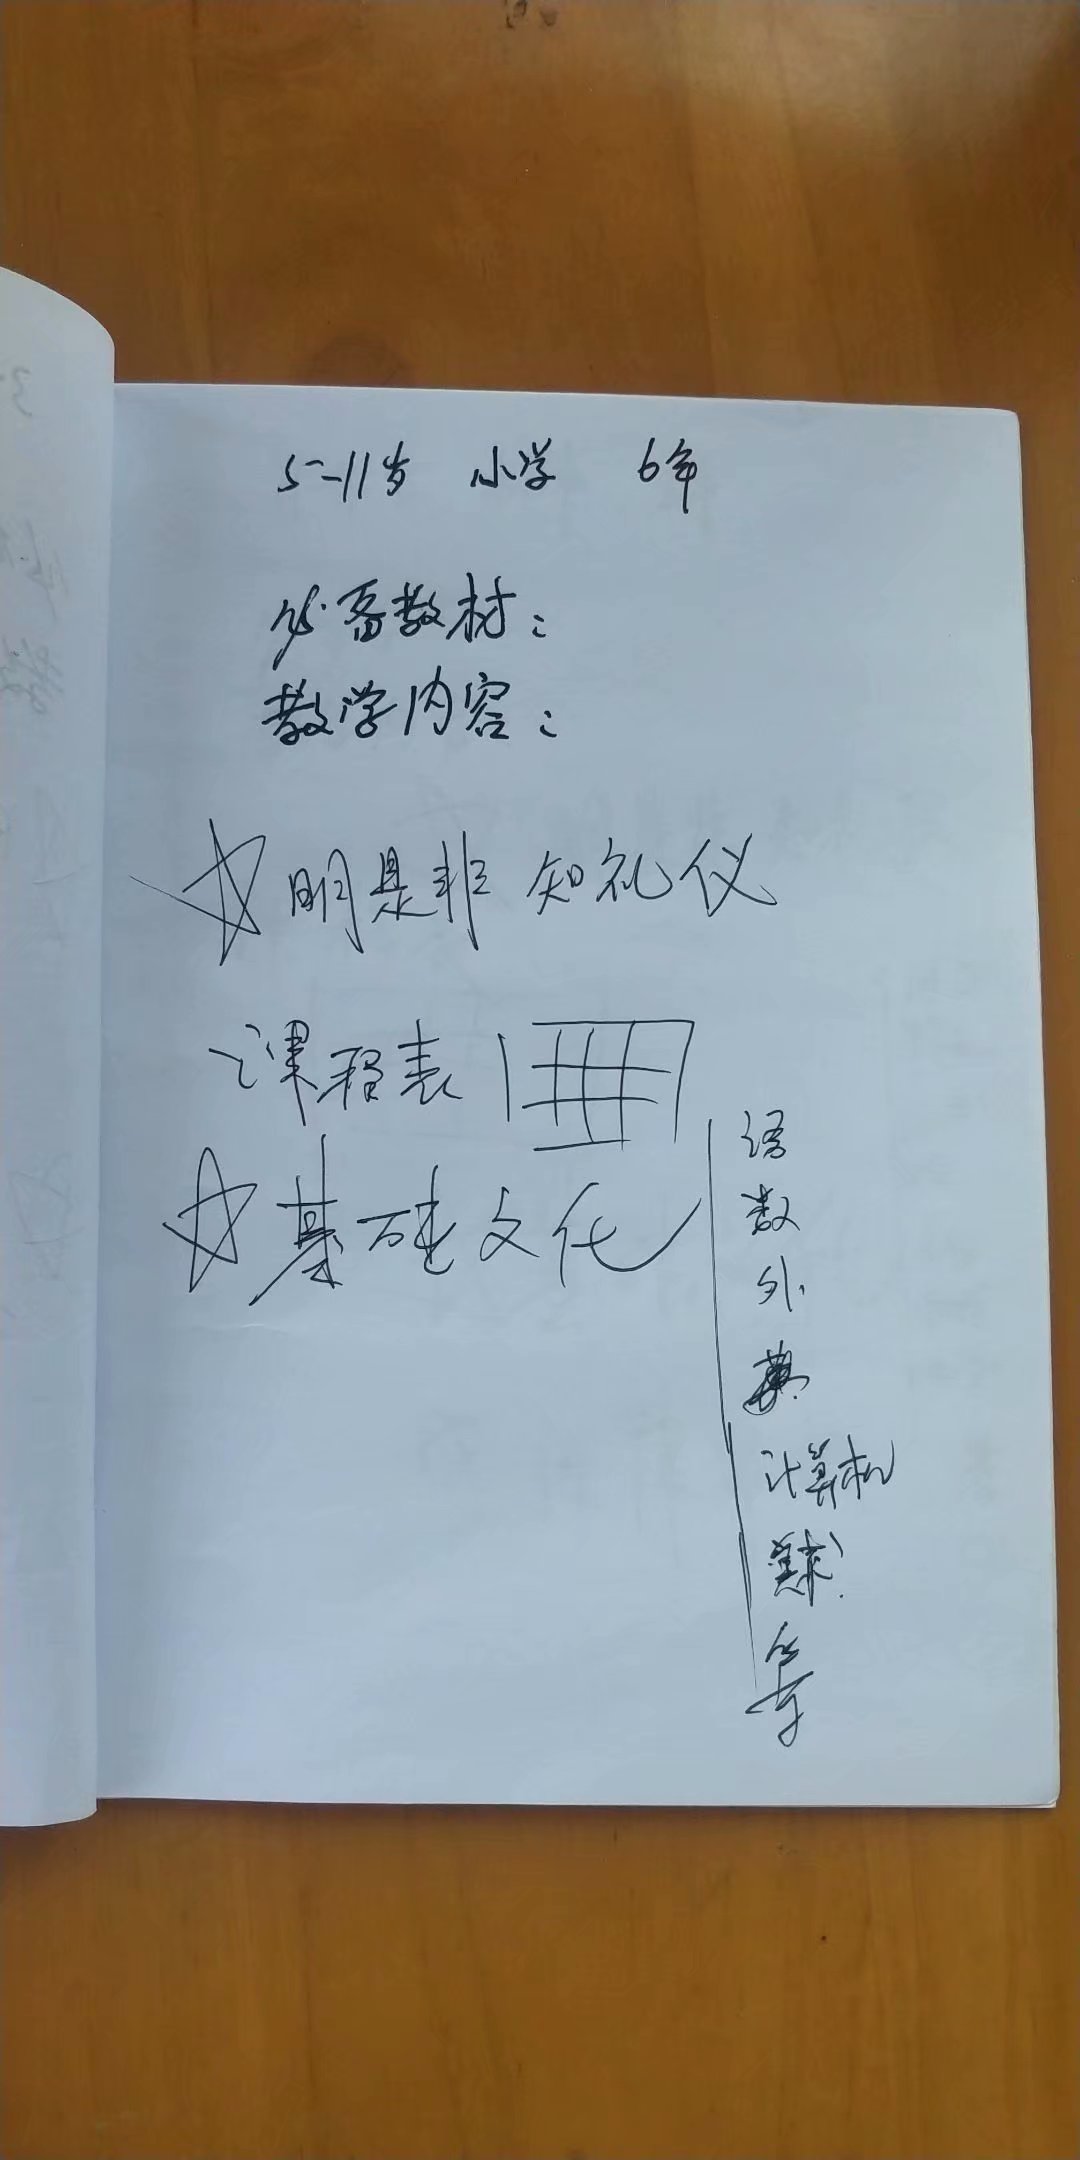 5-11岁 小学 6年
必备教材：
教学内容：
明是非 知礼仪
课程表
基础文化
语
数
外
计算机
等